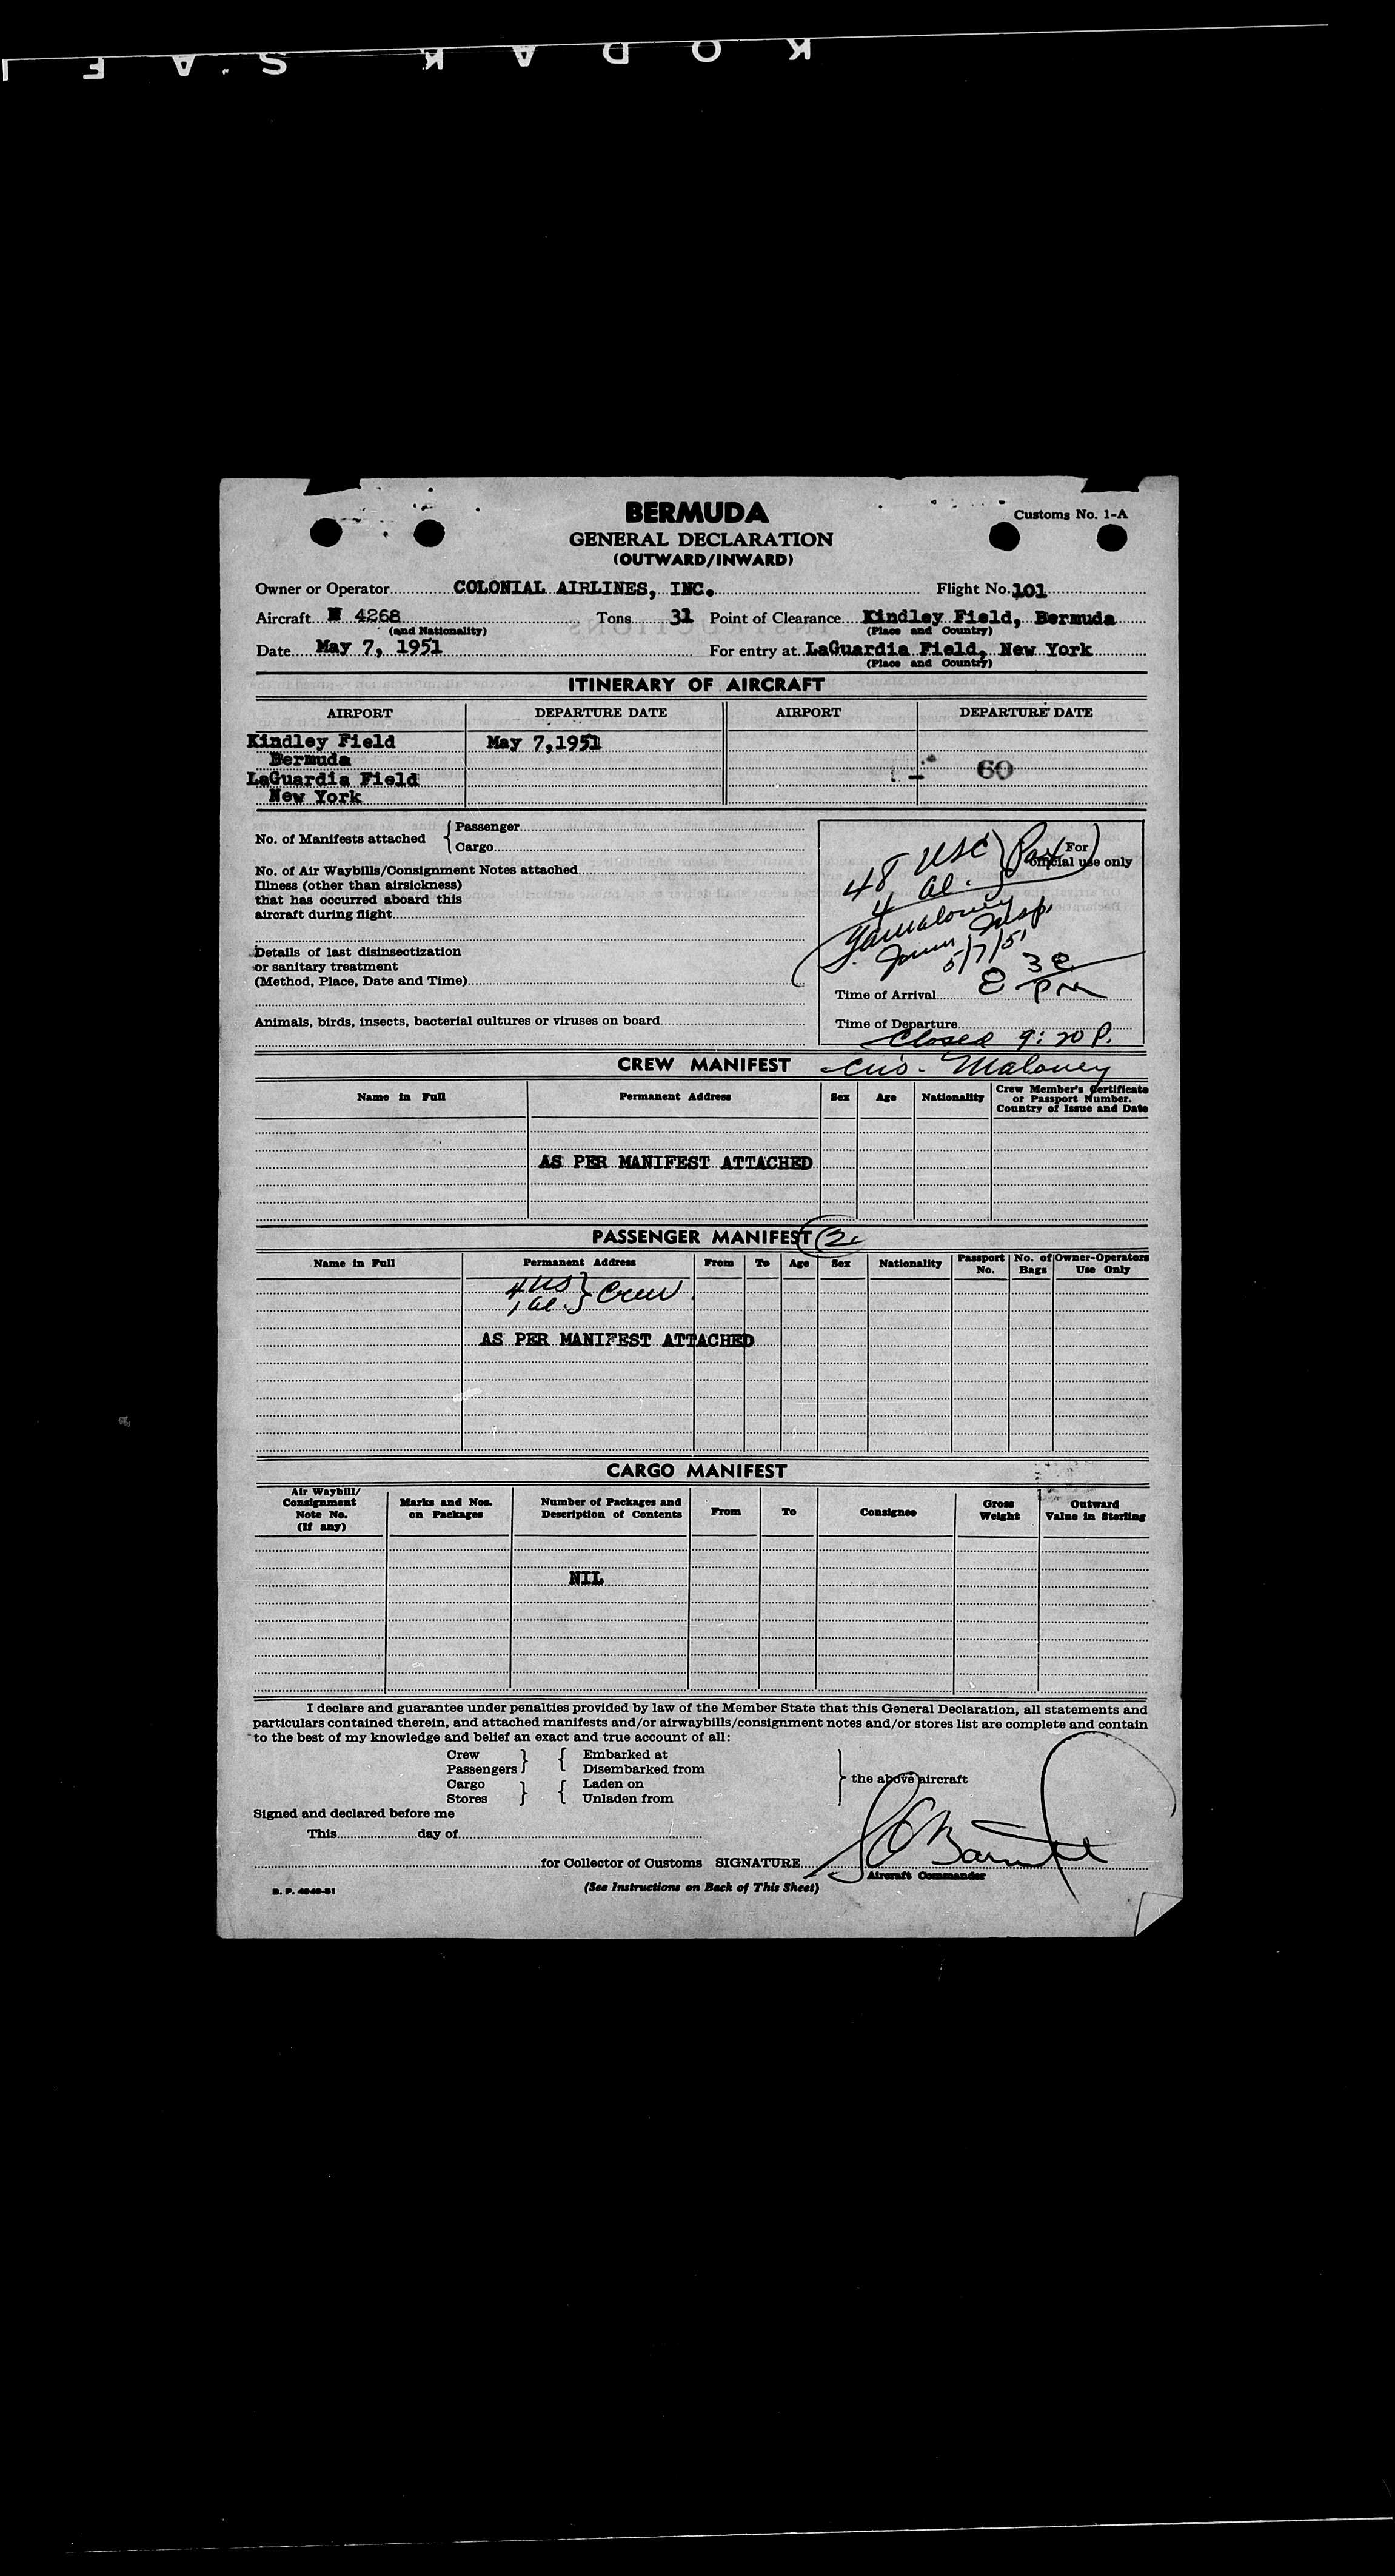 KODAK SAF
BERMUDA
Customs No. 1-A
GENERAL DECLARATION
(OUTWARD/INWARD)
Owner or Operator COLONIAL AIRLINES, INC. Flight No. 101
Aircraft N 4268 Tons 31 Point of Clearance Kindley Field, Bermuda
(and Nationality) (Place and Country)
Date May 7, 1951 For entry at LaGuardia Field, New York
(Place and Country)
ITINERARY OF AIRCRAFT
AIRPORT DEPARTURE DATE AIRPORT DEPARTURE DATE
Kindley Field May 7,1951
Bermuda
60
LaGuardia Field
New York
No. of Manifests attached { Passenger
Cargo
For
official use only
48 USC } Pax
4 al.
No. of Air Waybills/Consignment Notes attached
Illness (other than airsickness)
that has occurred aboard this
aircraft during flight
Maloney
Imm. Insp.
5/7/51
Details of last disinsectization
or sanitary treatment
(Method, Place, Date and Time)
8 38 PM
Time of Arrival
Animals, birds, insects, bacterial cultures or viruses on board
Time of Departure
Closed 9:20 P.
CREW MANIFEST
Cus. Maloney
Name in Full Permanent Address Sex Age Nationality Crew Member's Certificate
or Passport Number.
Country of Issue and Date
AS PER MANIFEST ATTACHED
PASSENGER MANIFEST (2)
Name in Full Permanent Address From To Age Sex Nationality Passport No. No. of Bags Owner-Operators Use Only
4 US } Crew
1 al.
AS PER MANIFEST ATTACHED
CARGO MANIFEST
Air Waybill/ Consignment Note No. (If any) Marks and Nos. on Packages Number of Packages and Description of Contents From To Consignee Gross Weight Outward Value in Sterling
NIL
I declare and guarantee under penalties provided by law of the Member State that this General Declaration, all statements and
particulars contained therein, and attached manifests and/or airwaybills/consignment notes and/or stores list are complete and contain
to the best of my knowledge and belief an exact and true account of all:
Crew } { Embarked at
Passengers Disembarked from
Cargo } { Laden on } the above aircraft
Stores Unladen from
Signed and declared before me
This day of
for Collector of Customs SIGNATURE
Aircraft Commander
B. P. 4949-51
(See Instructions on Back of This Sheet)